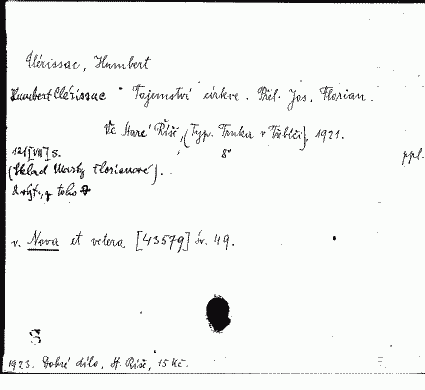 Clérissac, Humbert
Humbert Clérissac Tajemství církve. Přel. Jos. Florian.
Ve Staré Říši, (Typ. Trnka v Třebíči), 1921.
121 [VII] s. 8° ppl.
(Sklad Marty Florianové).
2 rýt., z toho
v. Nova et vetera [43579] sv. 49.
S
1923. Dobré dílo, St. Říše, 15 Kč.